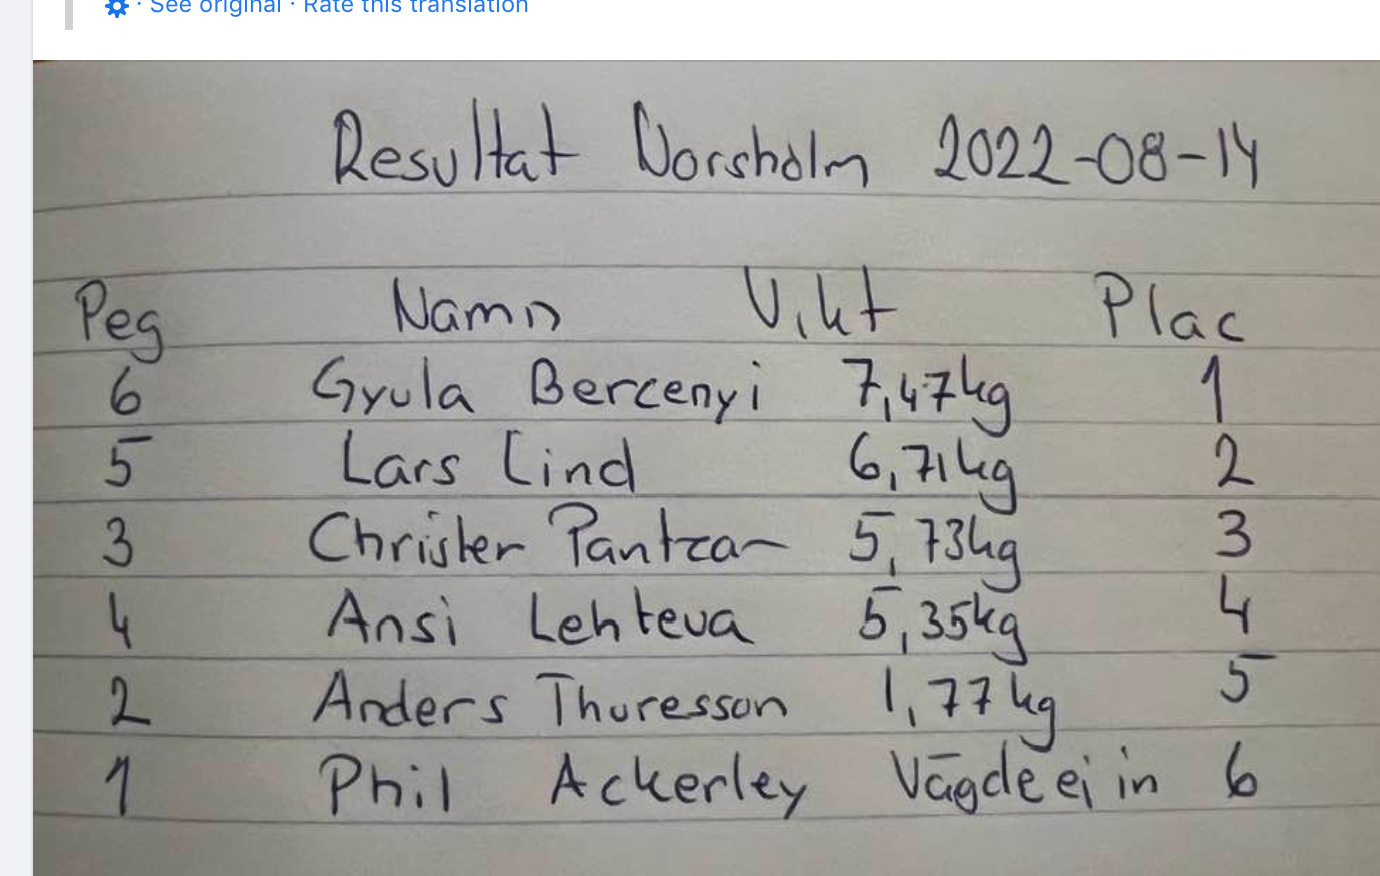 · See original · Rate this translation
Resultat Norsholm 2022-08-14
Peg Namn Vikt Plac
6 Gyula Bercenyi 7,47kg 1
5 Lars Lind 6,71kg 2
3 Christer Pantzar 5,73kg 3
4 Ansi Lehteva 5,35kg 4
2 Anders Thuresson 1,77kg 5
1 Phil Ackerley Vägde ej in 6